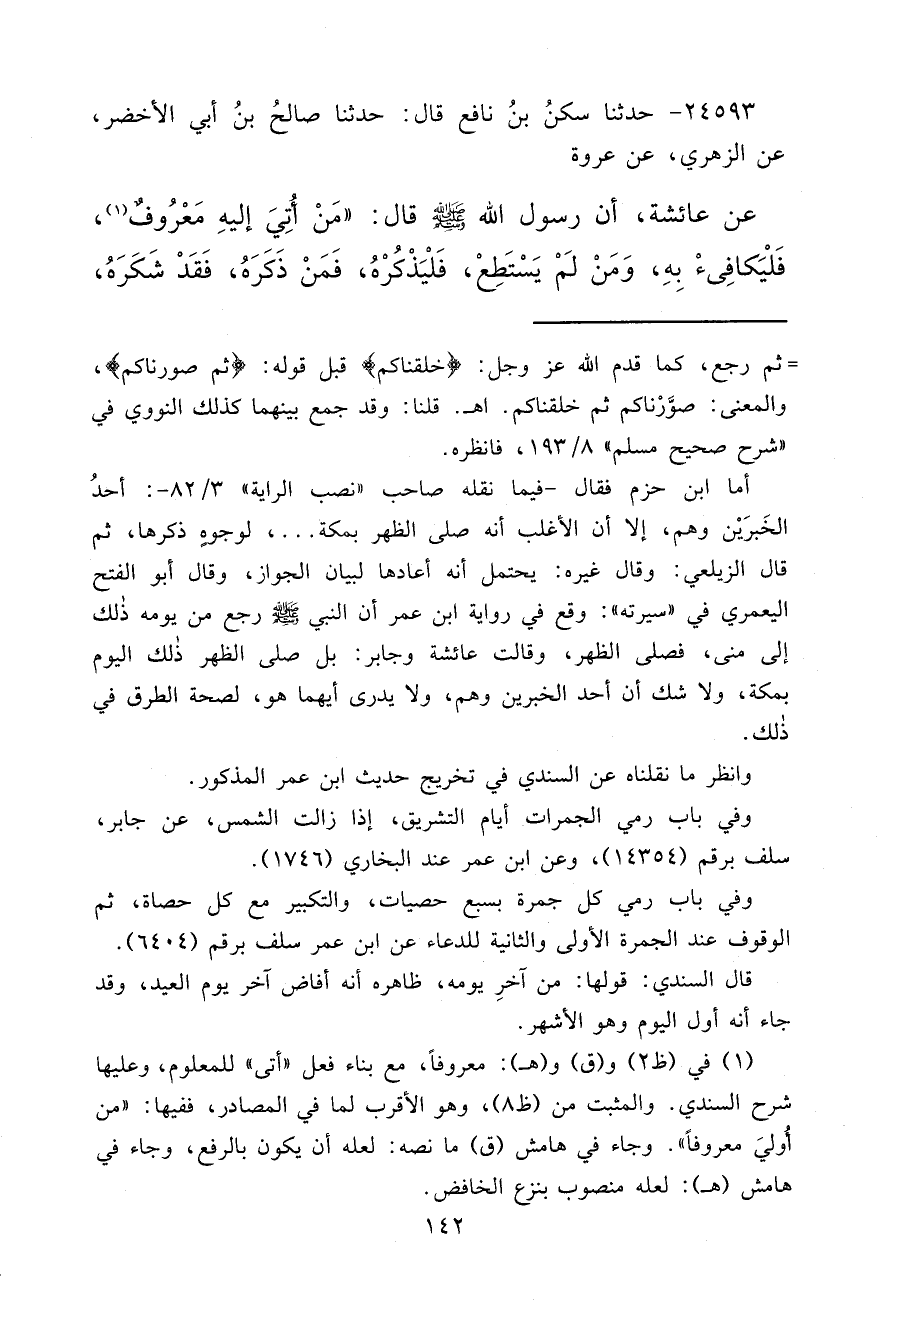 ٢٤٥٩٣- حدثنا سكنُ بنُ نافع قال: حدثنا صالحُ بنُ أبي الأخضر،
عن الزهري، عن عروة
عن عائشة، أن رسول الله ﷺ قال: «مَنْ أُتِيَ إليهِ مَعْرُوفٌ(١)،
فَلْيُكافِىءْ بِهِ، وَمَنْ لَمْ يَسْتَطِعْ، فَلْيَذْكُرْهُ، فَمَنْ ذَكَرَهُ، فَقَدْ شَكَرَهُ،
= ثم رجع، كما قدم الله عز وجل: ﴿خلقناكم﴾ قبل قوله: ﴿ثم صورناكم﴾،
والمعنى: صوَّرْناكم ثم خلقناكم. اهـ. قلنا: وقد جمع بينهما كذلك النووي في
«شرح صحيح مسلم» ٨/ ١٩٣، فانظره.
أما ابن حزم فقال -فيما نقله صاحب «نصب الراية» ٣/ ٨٢-: أحدُ
الخَبرَيْن وهم، إلا أن الأغلب أنه صلى الظهر بمكة...، لوجوهٍ ذكرها، ثم
قال الزيلعي: وقال غيره: يحتمل أنه أعادها لبيان الجواز، وقال أبو الفتح
اليعمري في «سيرته»: وقع في رواية ابن عمر أن النبي ﷺ رجع من يومه ذٰلك
إلى منى، فصلى الظهر، وقالت عائشة وجابر: بل صلى الظهر ذٰلك اليوم
بمكة، ولا شك أن أحد الخبرين وهم، ولا يدرى أيهما هو، لصحة الطرق في
ذٰلك.
وانظر ما نقلناه عن السندي في تخريج حديث ابن عمر المذكور.
وفي باب رمي الجمرات أيام التشريق، إذا زالت الشمس، عن جابر،
سلف برقم (١٤٣٥٤)، وعن ابن عمر عند البخاري (١٧٤٦).
وفي باب رمي كل جمرة بسبع حصيات، والتكبير مع كل حصاة، ثم
الوقوف عند الجمرة الأولى والثانية للدعاء عن ابن عمر سلف برقم (٦٤٠٤).
قال السندي: قولها: من آخرِ يومه، ظاهره أنه أفاض آخر يوم العيد، وقد
جاء أنه أول اليوم وهو الأشهر.
(١) في (ظ٢) و(ق) و(هـ): معروفاً، مع بناء فعل «أتى» للمعلوم، وعليها
شرح السندي. والمثبت من (ظ٨)، وهو الأقرب لما في المصادر، ففيها: «من
أُوليَ معروفاً». وجاء في هامش (ق) ما نصه: لعله أن يكون بالرفع، وجاء في
هامش (هـ): لعله منصوب بنزع الخافض.
١٤٢